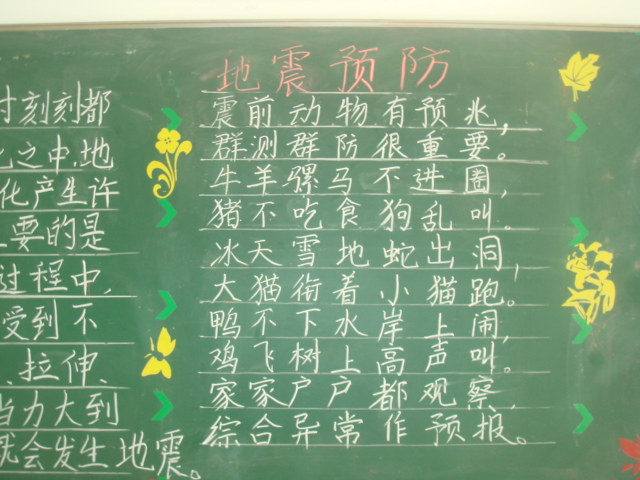 时刻刻都
之中,地
化产生许
要的是
过程中,
受到不
、拉伸、
当力大到
就会发生地震。
地震预防
震前动物有预兆,
群测群防很重要。
牛羊骡马不进圈,
猪不吃食狗乱叫。
冰天雪地蛇出洞,
大猫衔着小猫跑。
鸭不下水岸上闹,
鸡飞树上高声叫。
家家户户都观察,
综合异常作预报。